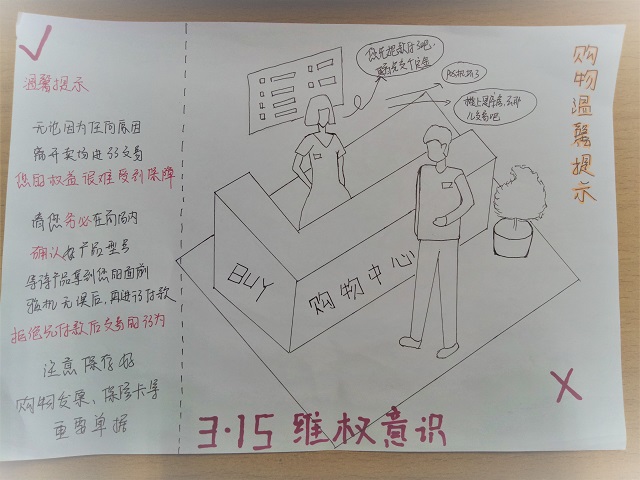 温馨提示
无论因为任何原因
离开卖场进行交易
您的权益很难受到保障
请您务必在商场内
确认好产品型号
等待产品拿到您的面前
验机无误后，再进行付款
拒绝先付款后交易的行为
注意保存好
购物发票、卡等
重要单据
您先把款付了吧，
先交个定金
POS机坏了
楼上是库房，去那
儿交易吧
购物温馨提示
BUY
购物中心
3·15 维权意识